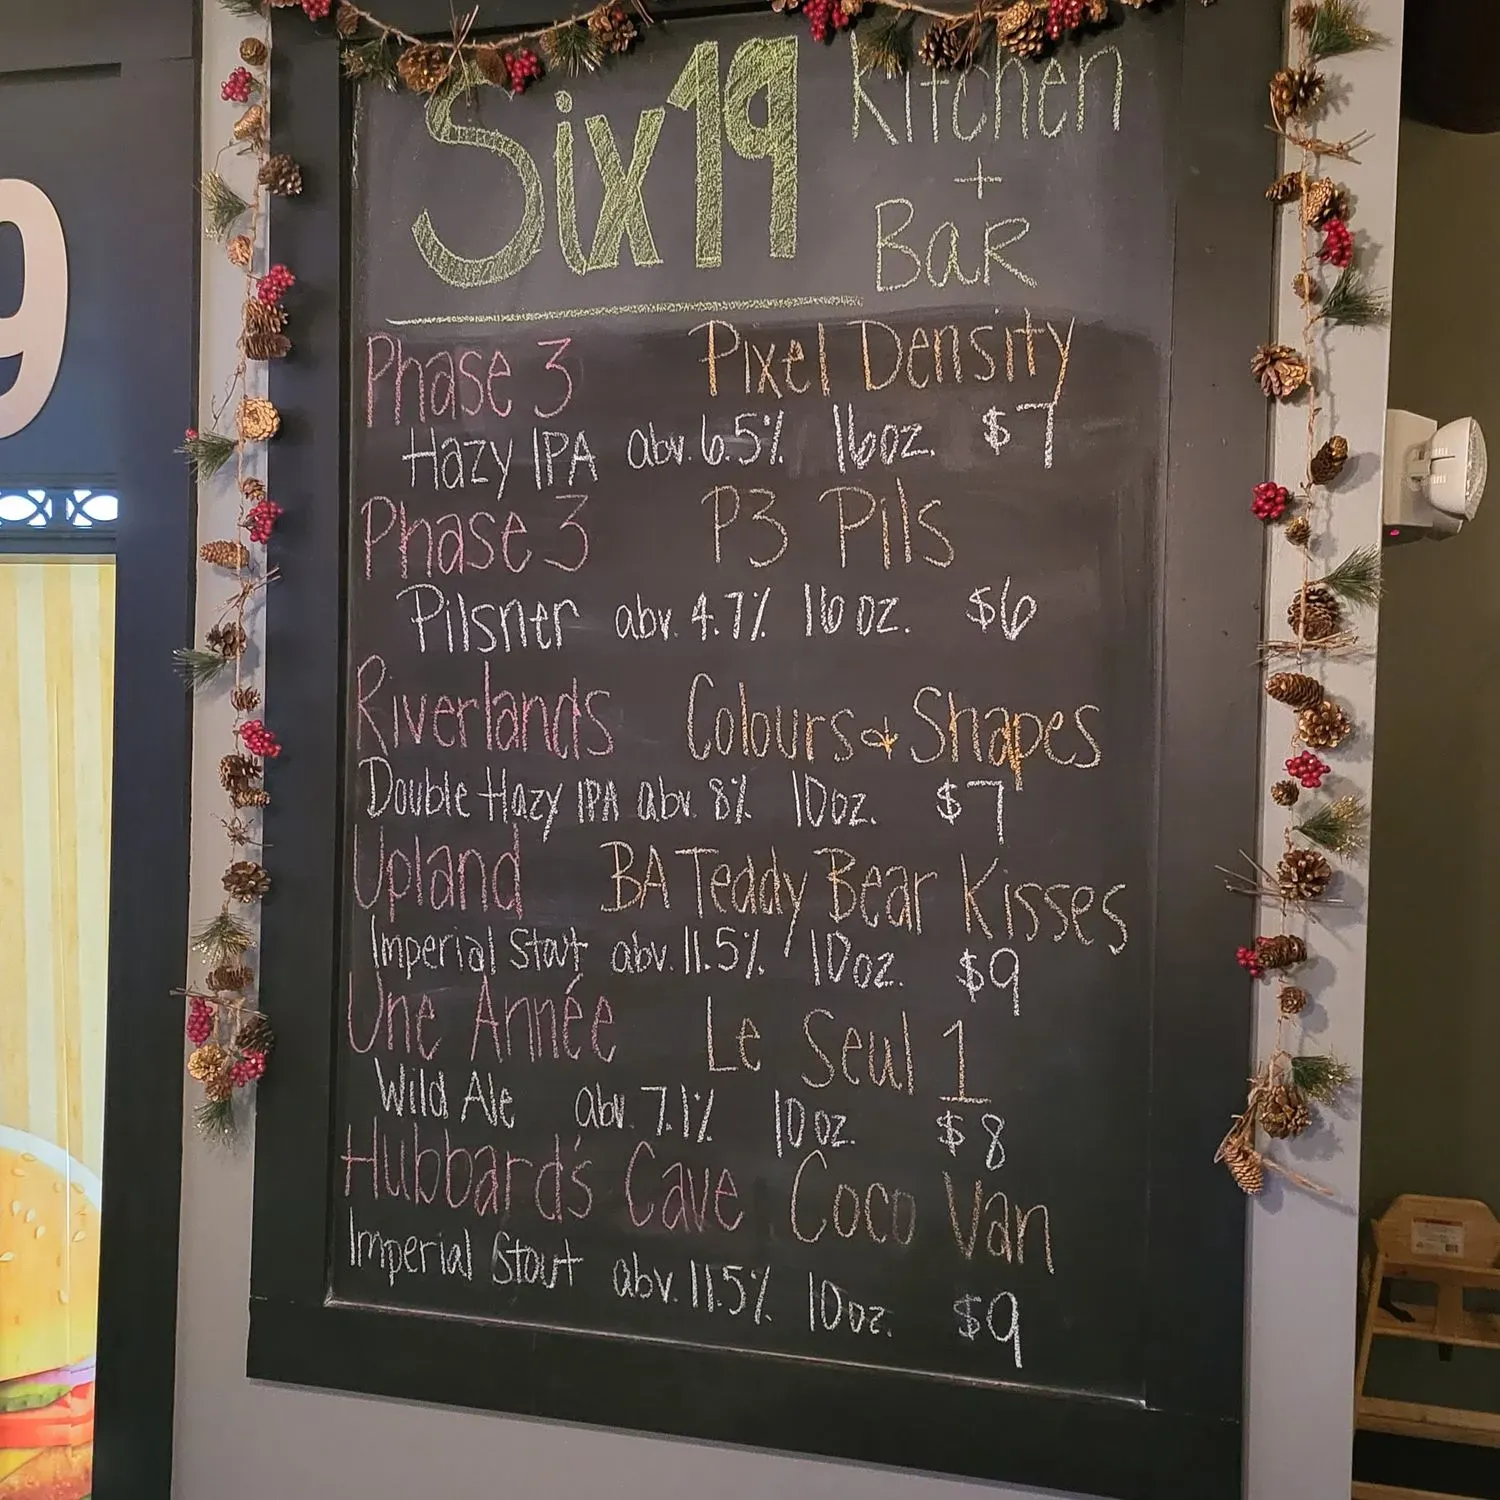 Six19 Kitchen
+
Bar
Phase 3 Pixel Density
Hazy IPA abv. 6.5% 16oz. $7
Phase 3 P3 Pils
Pilsner abv. 4.7% 16 oz. $6
Riverlands Colours & Shapes
Double Hazy IPA abv. 8% 10oz. $7
Upland BA Teddy Bear Kisses
Imperial Stout abv. 11.5% 10oz. $9
Une Année Le Seul 1
Wild Ale abv. 7.1% 10oz. $8
Hubbard's Cave Coco Van
Imperial Stout abv. 11.5% 10oz. $9
9